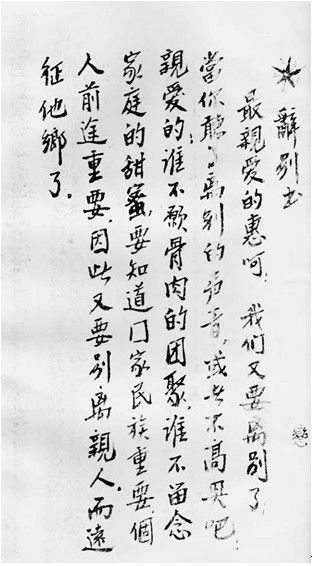 ★辭别书
最親爱的惠呵，我们又要离别了
當你聽了离别的声音，或者不高興吧
親爱的：谁不願骨肉的团聚，谁不留念
家庭的甜蜜，要知道囗家民族重要，個
人前途重要，因此又要别离親人，而遠
征他鄉了。